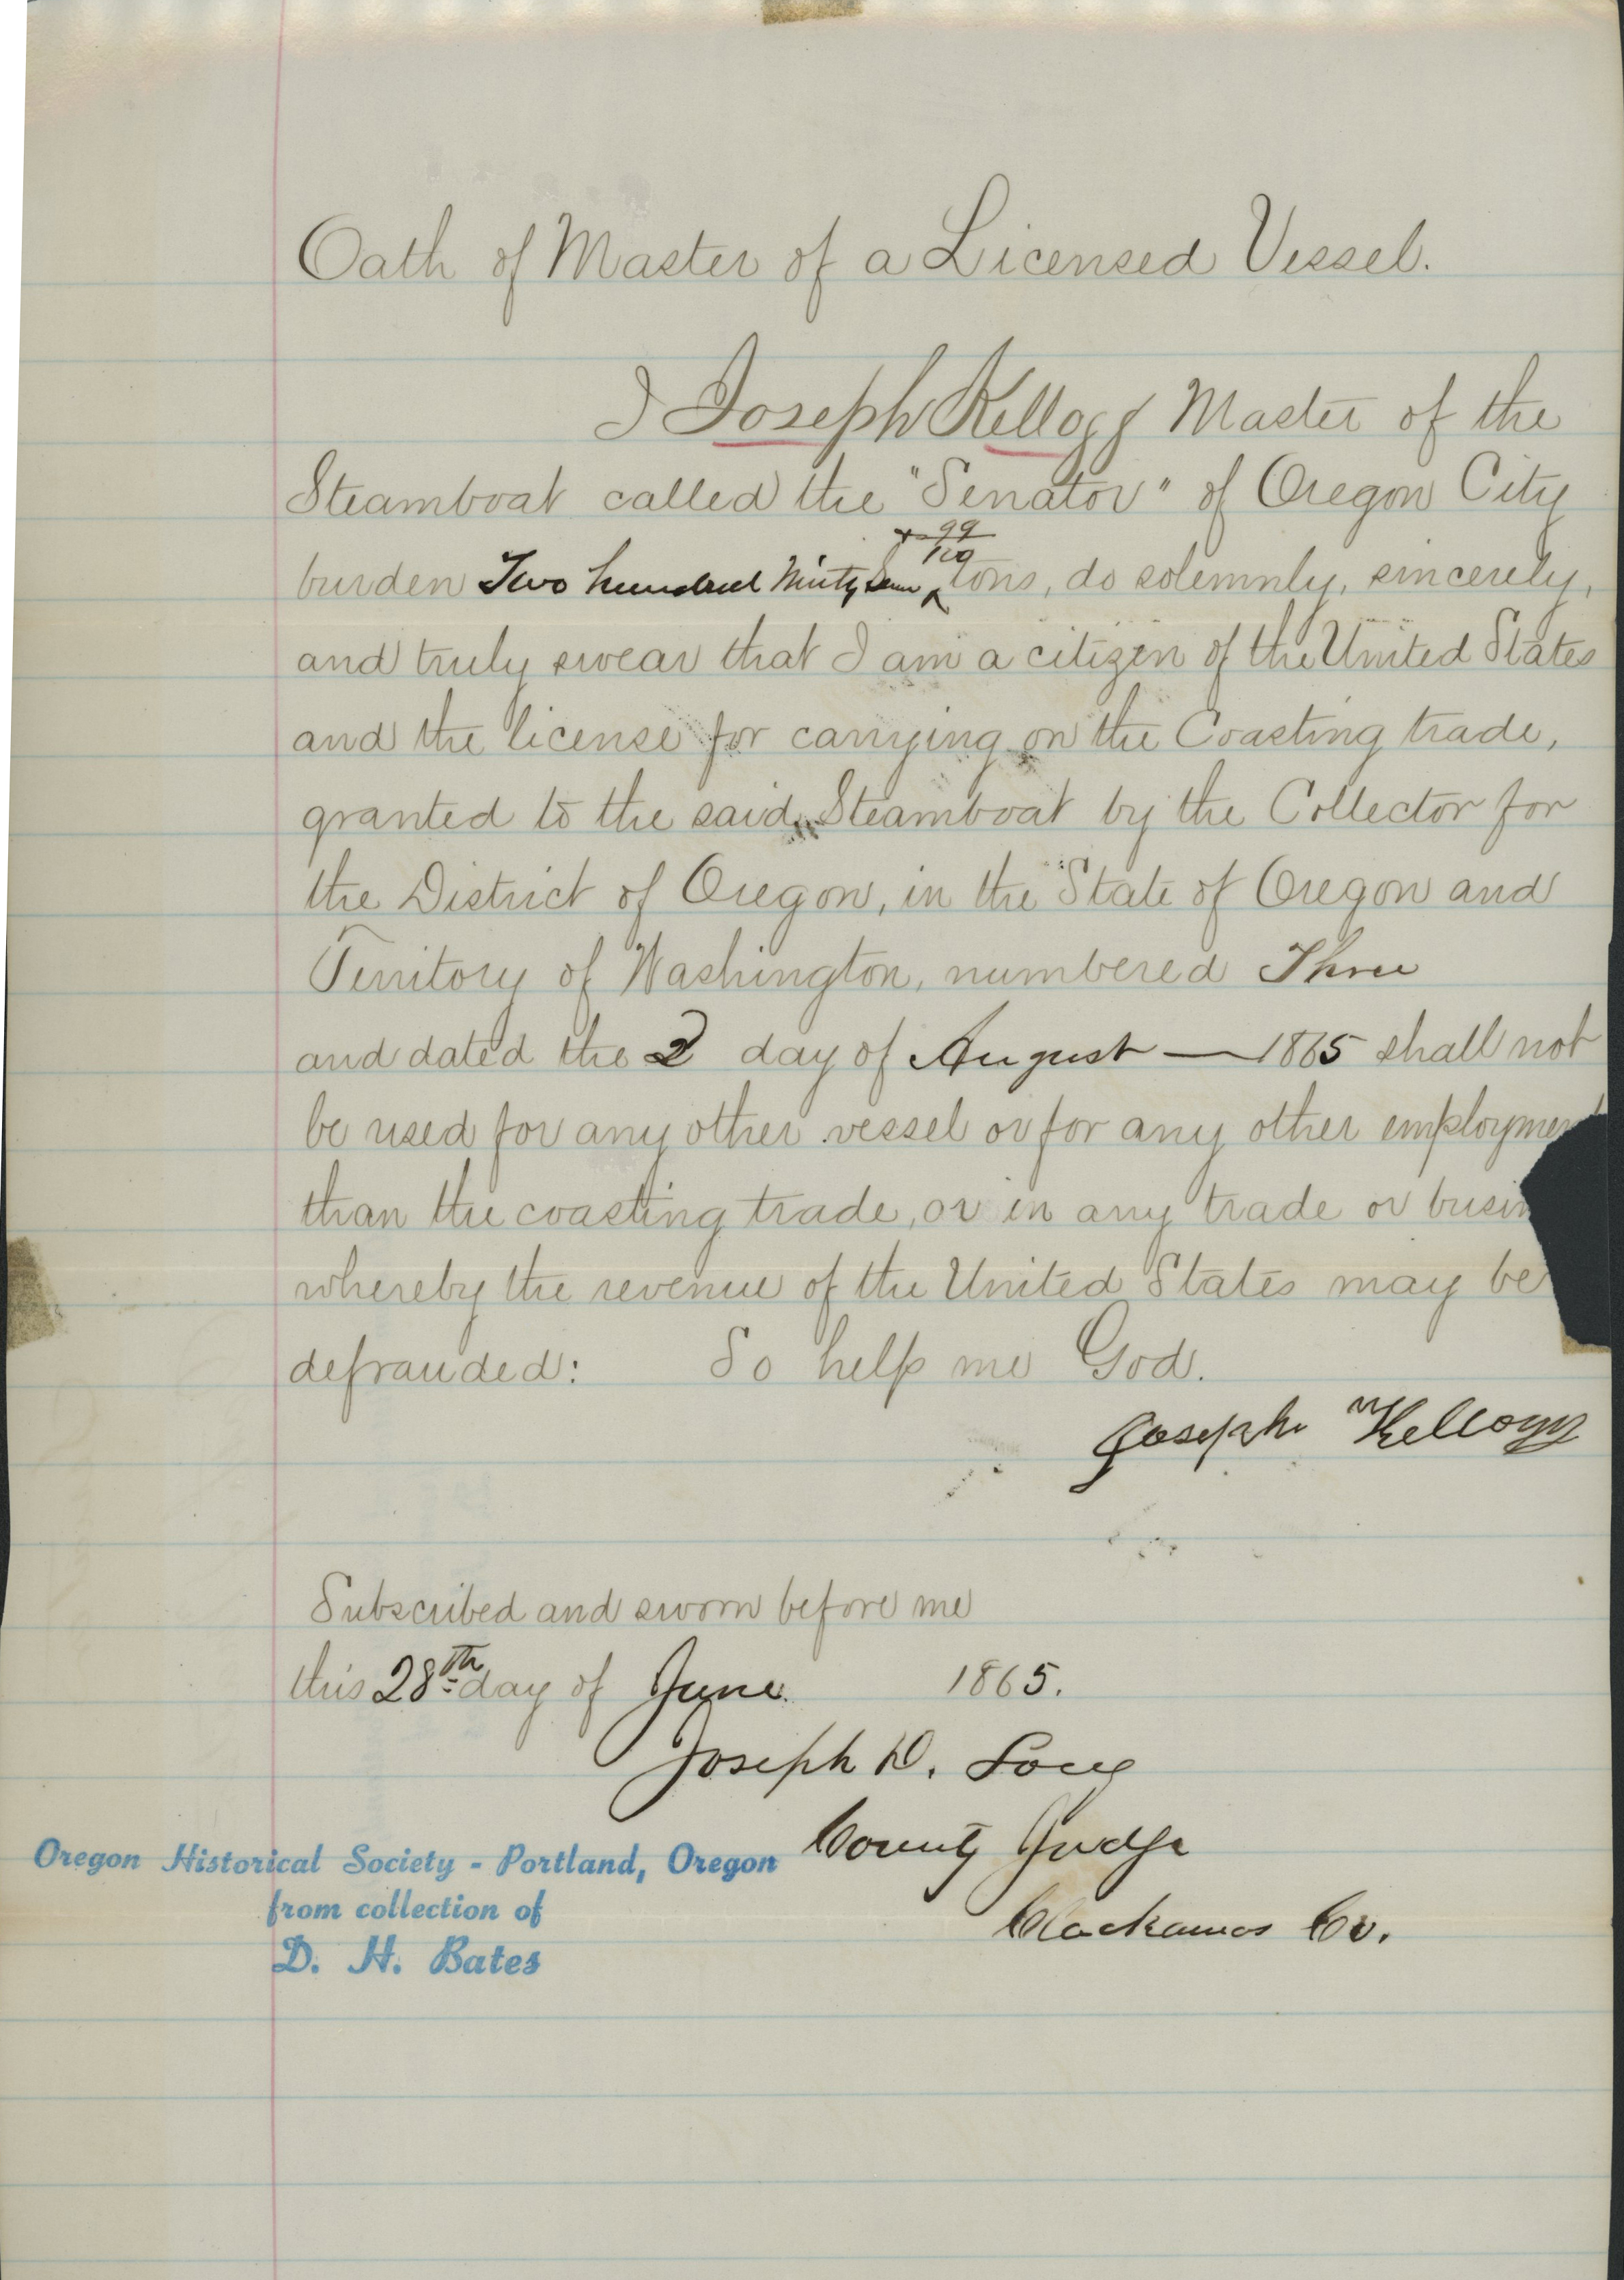 Oath of Master of a Licensed Vessel.
I Joseph Kellogg Master of the
Steamboat called the "Senator" of Oregon City
+ 99/100
burden Two hundred Ninty Seven ^ tons, do solemnly, sincerely,
and truly swear that I am a citizen of the United States
and the license for carrying on the Coasting trade,
granted to the said Steamboat by the Collector for
the District of Oregon, in the State of Oregon and
Territory of Washington, numbered Three
and dated the 2 day of August — 1865 shall not
be used for any other vessel or for any other employmen
than the coasting trade, or in any trade or busin
whereby the revenue of the United States may be
defrauded: So help me God.
Joseph Kellogg
Subscribed and sworn before me
this 28th day of June 1865.
Joseph D. Locey
County Judge
Clackamas Co.
Oregon Historical Society - Portland, Oregon
from collection of
D. H. Bates